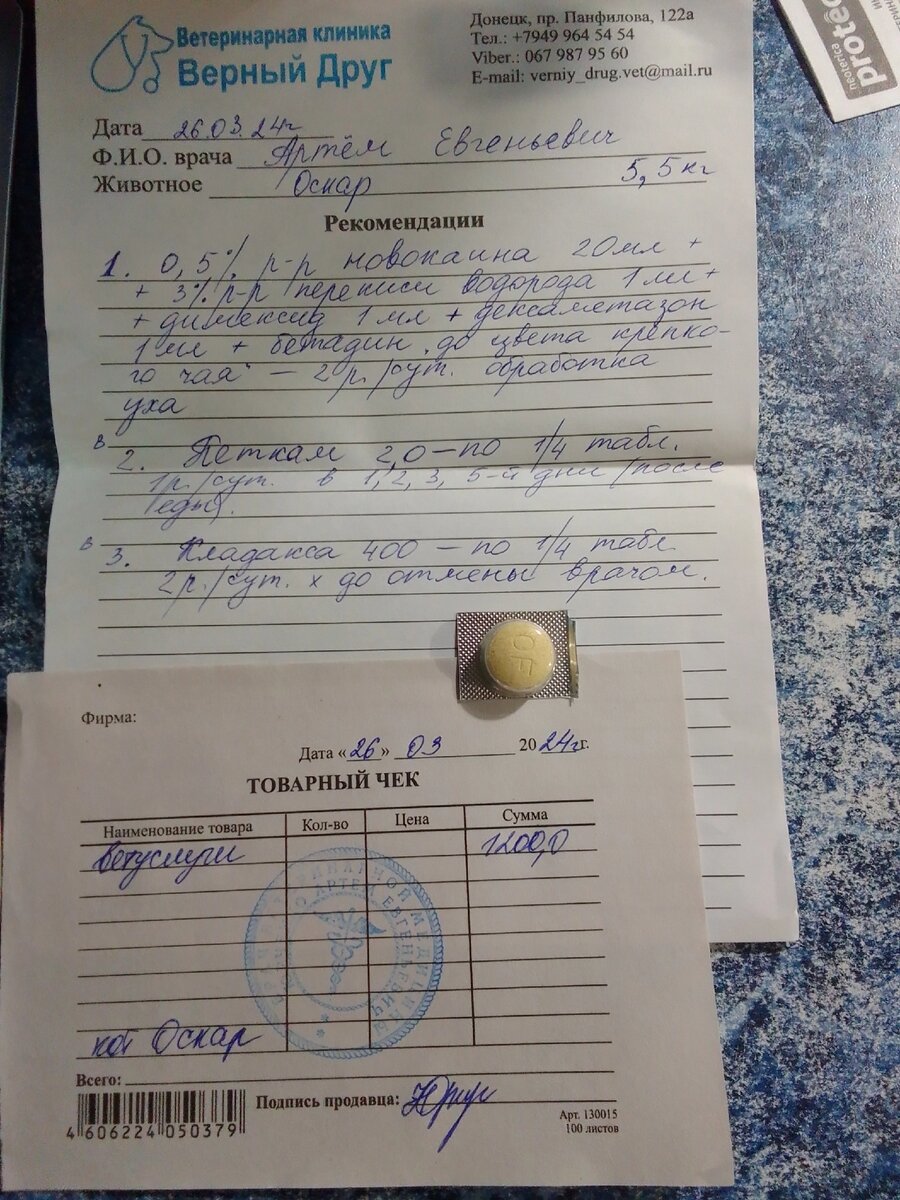 Ветеринарная клиника
Верный Друг
Донецк, пр. Панфилова, 122а
Тел.: +7949 964 54 54
Viber.: 067 987 95 60
E-mail: verniy_drug.vet@mail.ru
neoterica
protec
Дата 26.03.24г
Ф.И.О. врача Артём Евгеньевич
Животное Оскар 5,5кг
Рекомендации
1. 0,5% р-р новокаина 20мл +
+ 3% р-р переписи водорода 1 мл +
+ димексид 1 мл + дексаметазон
1 мл + бетадин "до цвета крепко-
го чая" — 2 р./сут. обработка
уха
в 2. Петкам 2,0 — по 1/4 табл.
1р./сут. в 1, 2, 3, 5-й дни (после
еды).
в 3. Кладакса 400 — по 1/4 табл
2р./сут. х до отмены врачом.
OF
Фирма:
Дата «26» 03 2024г.
ТОВАРНЫЙ ЧЕК
Наименование товара Кол-во Цена Сумма
Ветуслуги 1200,0
АРТЕМ ЕВГЕНЬЕВИЧ
кот Оскар
Всего:
Подпись продавца:
4 606224 050379
Арт. 130015
100 листов